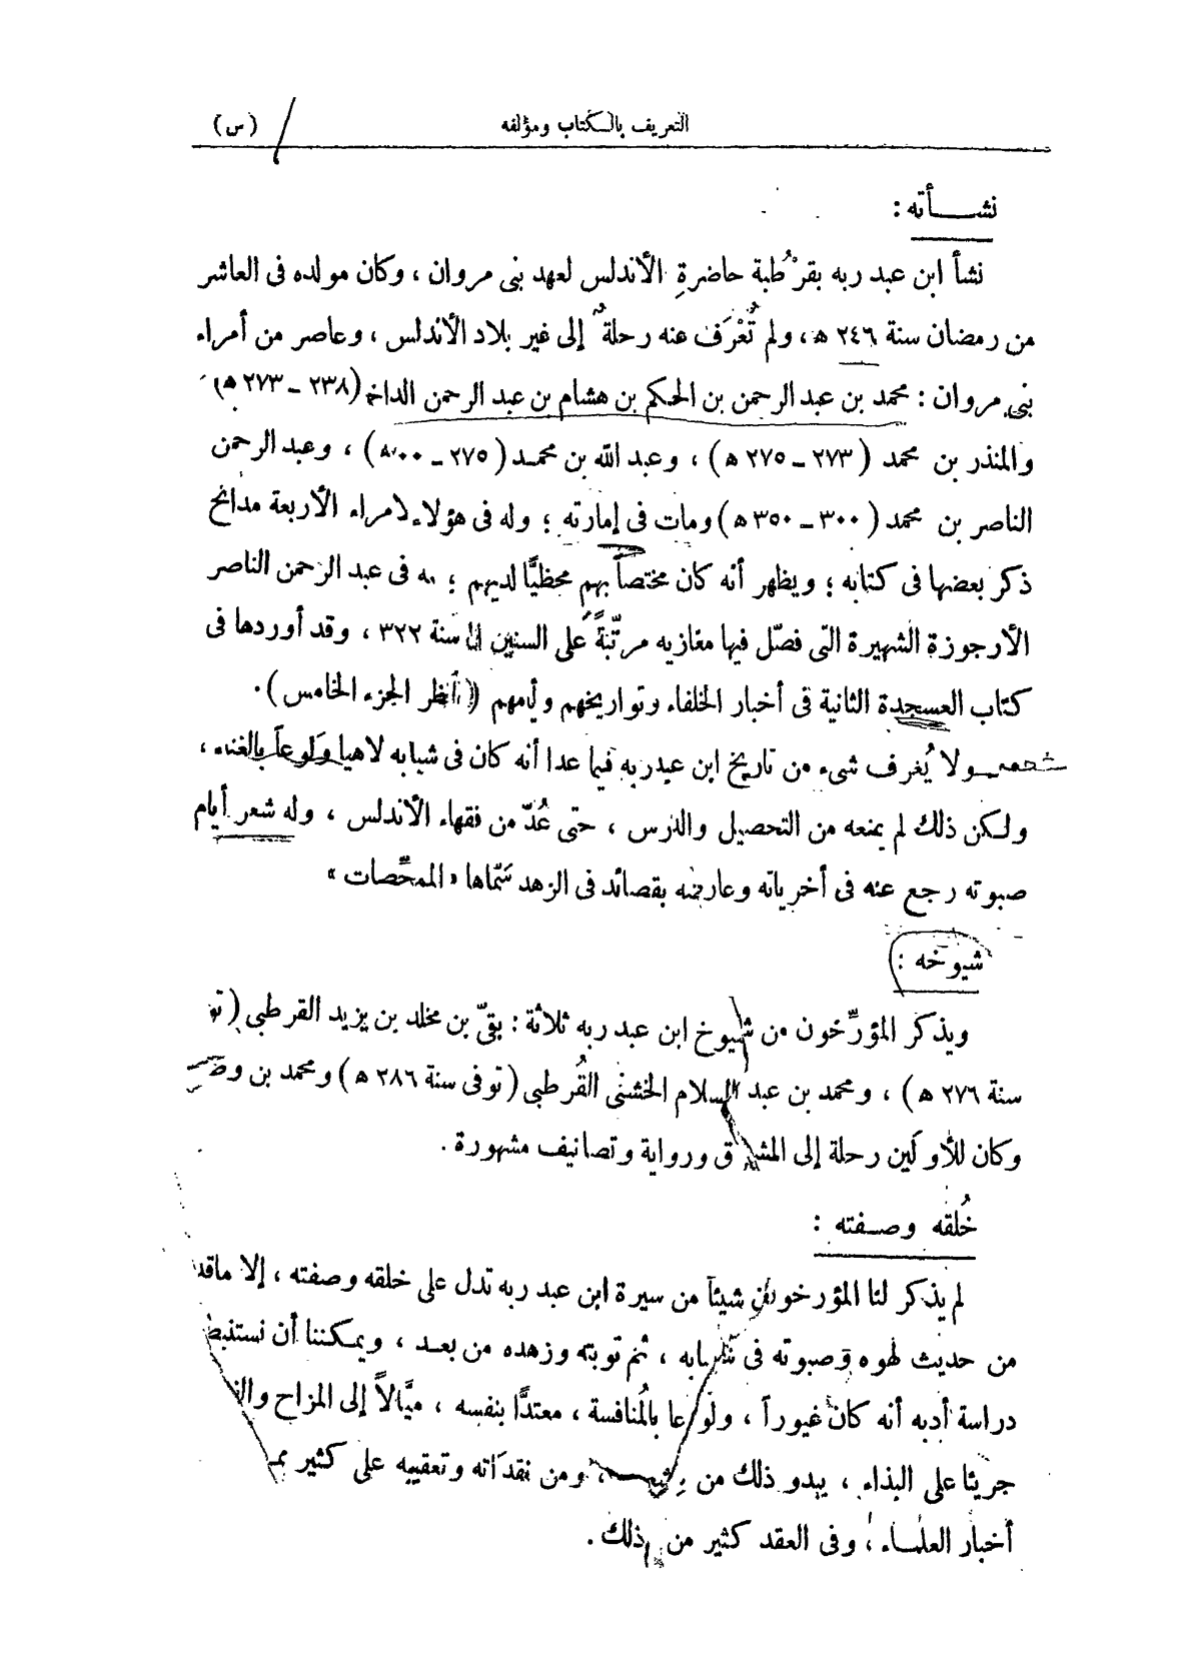 التعريف بالكتاب ومؤلفه (س)
نشأته :
نشأ ابن عبد ربه بقرْطُبة حاضرةِ الأندلس لعهد بنى مروان ، وكان مولده فى العاشر
من رمضان سنة ٢٤٦ هـ، ولم تُعْرَف عنه رحلةٌ إلى غير بلاد الأندلس ، وعاصر من أمراء
بنى مروان : محمد بن عبد الرحمن بن الحكم بن هشام بن عبد الرحمن الداخل (٢٣٨ – ٢٧٣ هـ)
والمنذر بن محمد (٢٧٣ – ٢٧٥ هـ) ، وعبد الله بن محمد (٢٧٥ – ٣٠٠ هـ) ، وعبد الرحمن
الناصر بن محمد (٣٠٠ – ٣٥٠ هـ) ومات فى إمارته ؛ وله فى هؤلاء الأمراء الأربعة مدائح
ذكر بعضها فى كتابه ؛ ويظهر أنه كان مختصاً بهم محظيًّا لديهم ؛ وله فى عبد الرحمن الناصر
الأرجوزة الشهيرة التى فصّل فيها مغازيه مرتّبةً على السنين إلى سنة ٣٢٢ ، وقد أوردها فى
كتاب العسجدة الثانية فى أخبار الخلفاء وتواريخهم وأيامهم (انظر الجزء الخامس) .
ولا يُعرف شىء من تاريخ ابن عبد ربه فيما عدا أنه كان فى شبابه لاهيا ولوعاً بالغناء ،
ولكن ذلك لم يمنعه من التحصيل والدرس ، حتى عُدّ من فقهاء الأندلس ، وله شعر أيام
صبوته رجع عنه فى أخرياته وعارضه بقصائد فى الزهد سَمّاها « الممحّصات »
شيوخه :
ويذكر المؤرّخون من شيوخ ابن عبد ربه ثلاثة : بقىّ بن مخلد بن يزيد القرطبى (
سنة ٢٧٦ هـ) ، ومحمد بن عبد السلام الخشنى القُرطبى (توفى سنة ٢٨٦ هـ) ومحمد بن
وكان للأوّلَين رحلة إلى المشرق ورواية وتصانيف مشهورة .
خُلقه وصفته :
لم يذكر لنا المؤرخون شيئاً من سيرة ابن عبد ربه تدل على خلقه وصفته ، إلا ماقد
من حديث لهوه وصبوته فى شبابه ، ثم توبته وزهده من بعد ، ويمكننا أن نستنبط
دراسة أدبه أنه كان غيوراً ، ولوعا بالمُنافسة ، معتدًّا بنفسه ، ميَّالاً إلى المزاح
جريئا على البذاء ، يبدو ذلك من ، ومن نقداته وتعقيبه على كثير
أخبار العلماء ، وفى العقد كثير من ذلك .